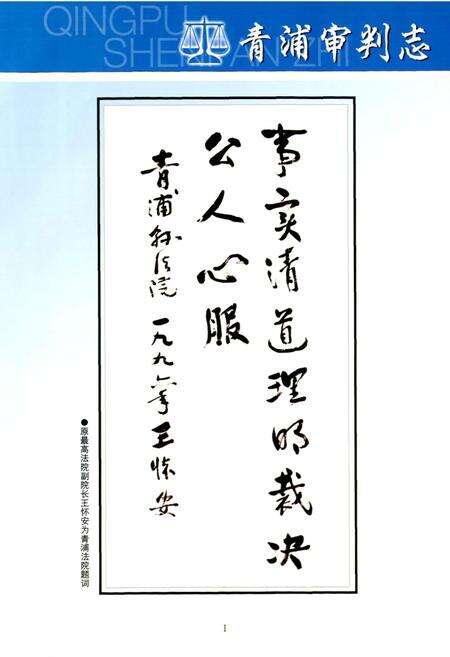 QINGPU
SHENPAN ZHI
青浦审判志
事实清道理明裁决
公人心服
青浦县法院 一九九六年 王怀安
●原最高法院副院长王怀安为青浦法院题词
I